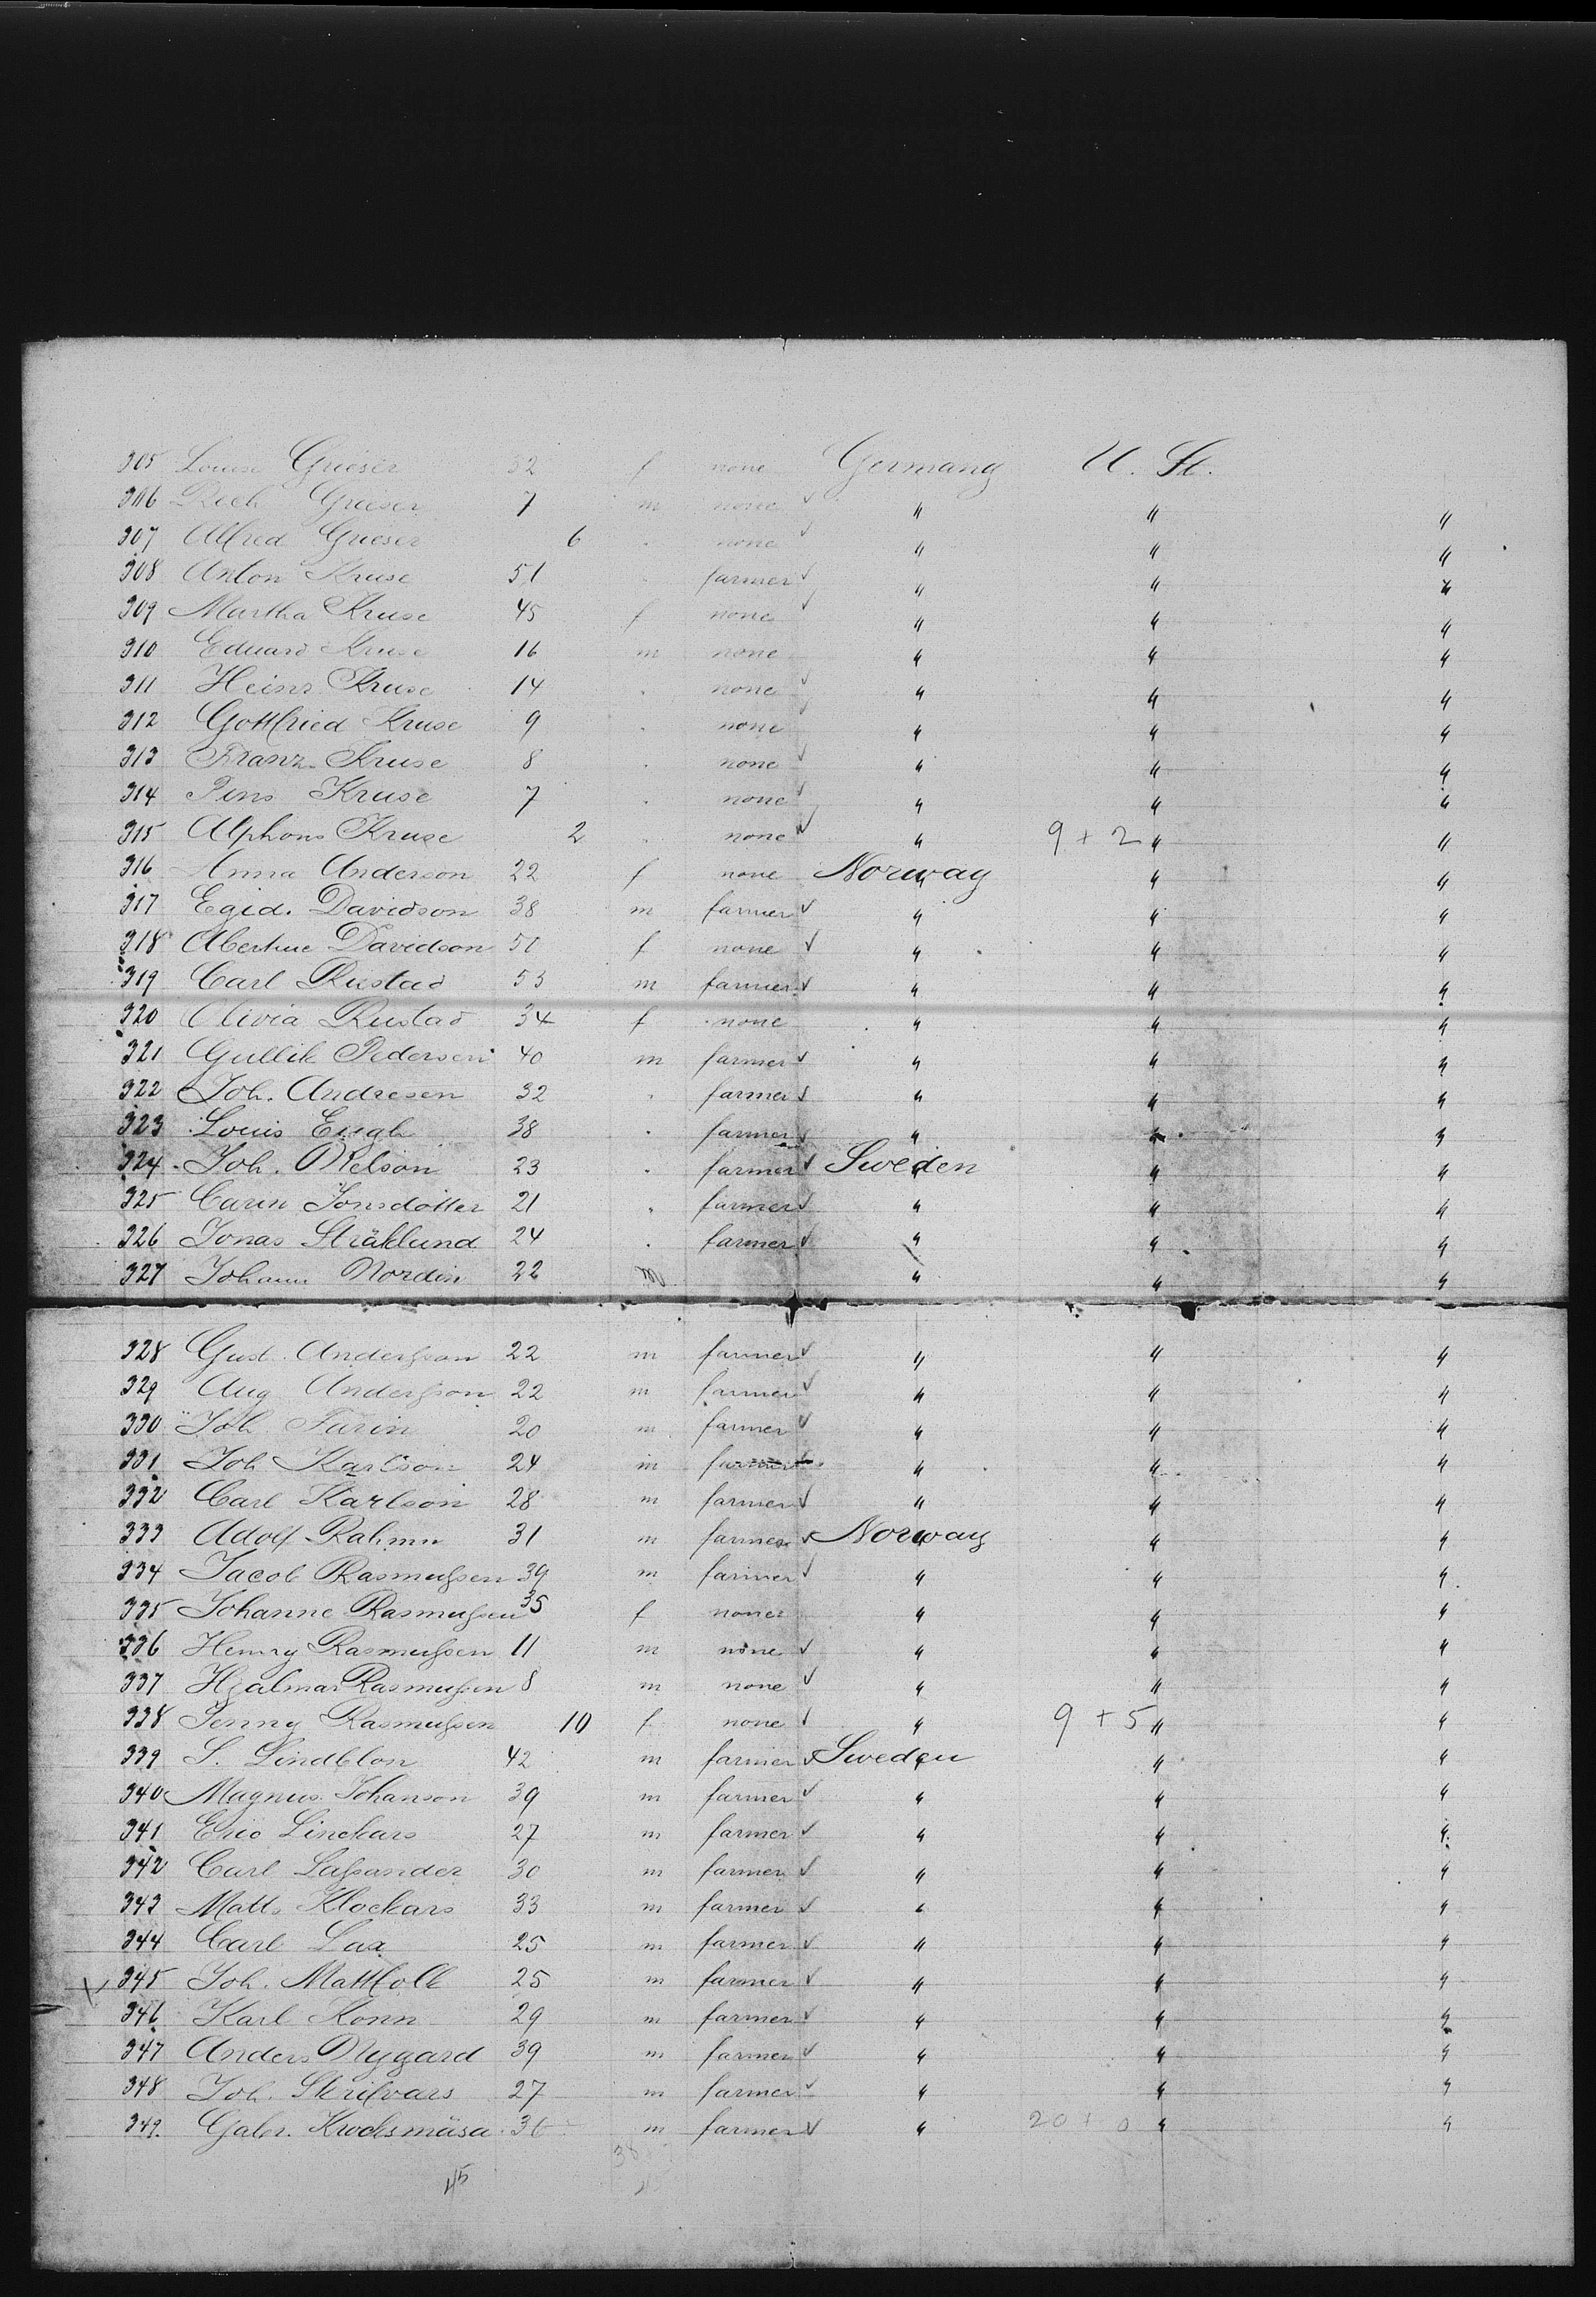 305 Louise Grieser 32 f none Germany U. St.
306 Rich Grieser 7 m none " " "
307 Alfred Grieser 6 . none " " "
308 Anton Kruse 51 . farmer " " "
309 Martha Kruse 45 f none " " "
310 Eduard Kruse 16 m none " " "
311 Heinr Kruse 14 . none " " "
312 Gottfried Kruse 9 . none " " "
313 Franz Kruse 8 . none " " "
314 Pins Kruse 7 . none " " "
315 Alphons Kruse 2 . none " 9 + 2 " "
316 Anna Anderson 22 f none Norway " "
317 Egid. Davidson 38 m farmer " " "
318 Albertine Davidson 50 f none " " "
319 Carl Rustad 53 m farmer " " "
320 Olivia Rustad 34 f none " " "
321 Gullik Pedersen 40 m farmer " " "
322 Joh. Andresen 32 . farmer " " "
323 Louis Engh 38 . farmer " " "
324 Joh. Nelson 23 . farmer Sweden " "
325 Carin Jonsdotter 21 . farmer " " "
326 Jonas Sträklund 24 . farmer " " "
327 Johann Nordin 22 m " " "
328 Gust. Andersson 22 m farmer " " "
329 Aug Andersson 22 m farmer " " "
330 Joh. Turin 20 m farmer " " "
331 Joh Karlson 24 m farmer " " "
332 Carl Karlson 28 m farmer " " "
333 Adolf Rahmn 31 m farmer Norway " "
334 Jacob Rasmussen 39 m farmer " " "
335 Johanne Rasmussen 35 f none " " "
336 Henry Rasmussen 11 m none " " "
337 Hjalmar Rasmussen 8 m none " " "
338 Jenny Rasmussen 10 f none " 9 + 5 " "
339 S. Lindblon 42 m farmer Sweden " "
340 Magnus Johanson 39 m farmer " " "
341 Eric Linckars 27 m farmer " " "
342 Carl Lassander 30 m farmer " " "
343 Matts Klockars 33 m farmer " " "
344 Carl Lax 25 m farmer " " "
345 Joh. Mattfolk 25 m farmer " " "
346 Karl Konn 29 m farmer " " "
347 Anders Nygard 39 m farmer " " "
348 Joh. Skrifvars 27 m farmer " " "
349. Gabr. Krocksmäsa 36 m farmer " 20 + 0 " "
38
45